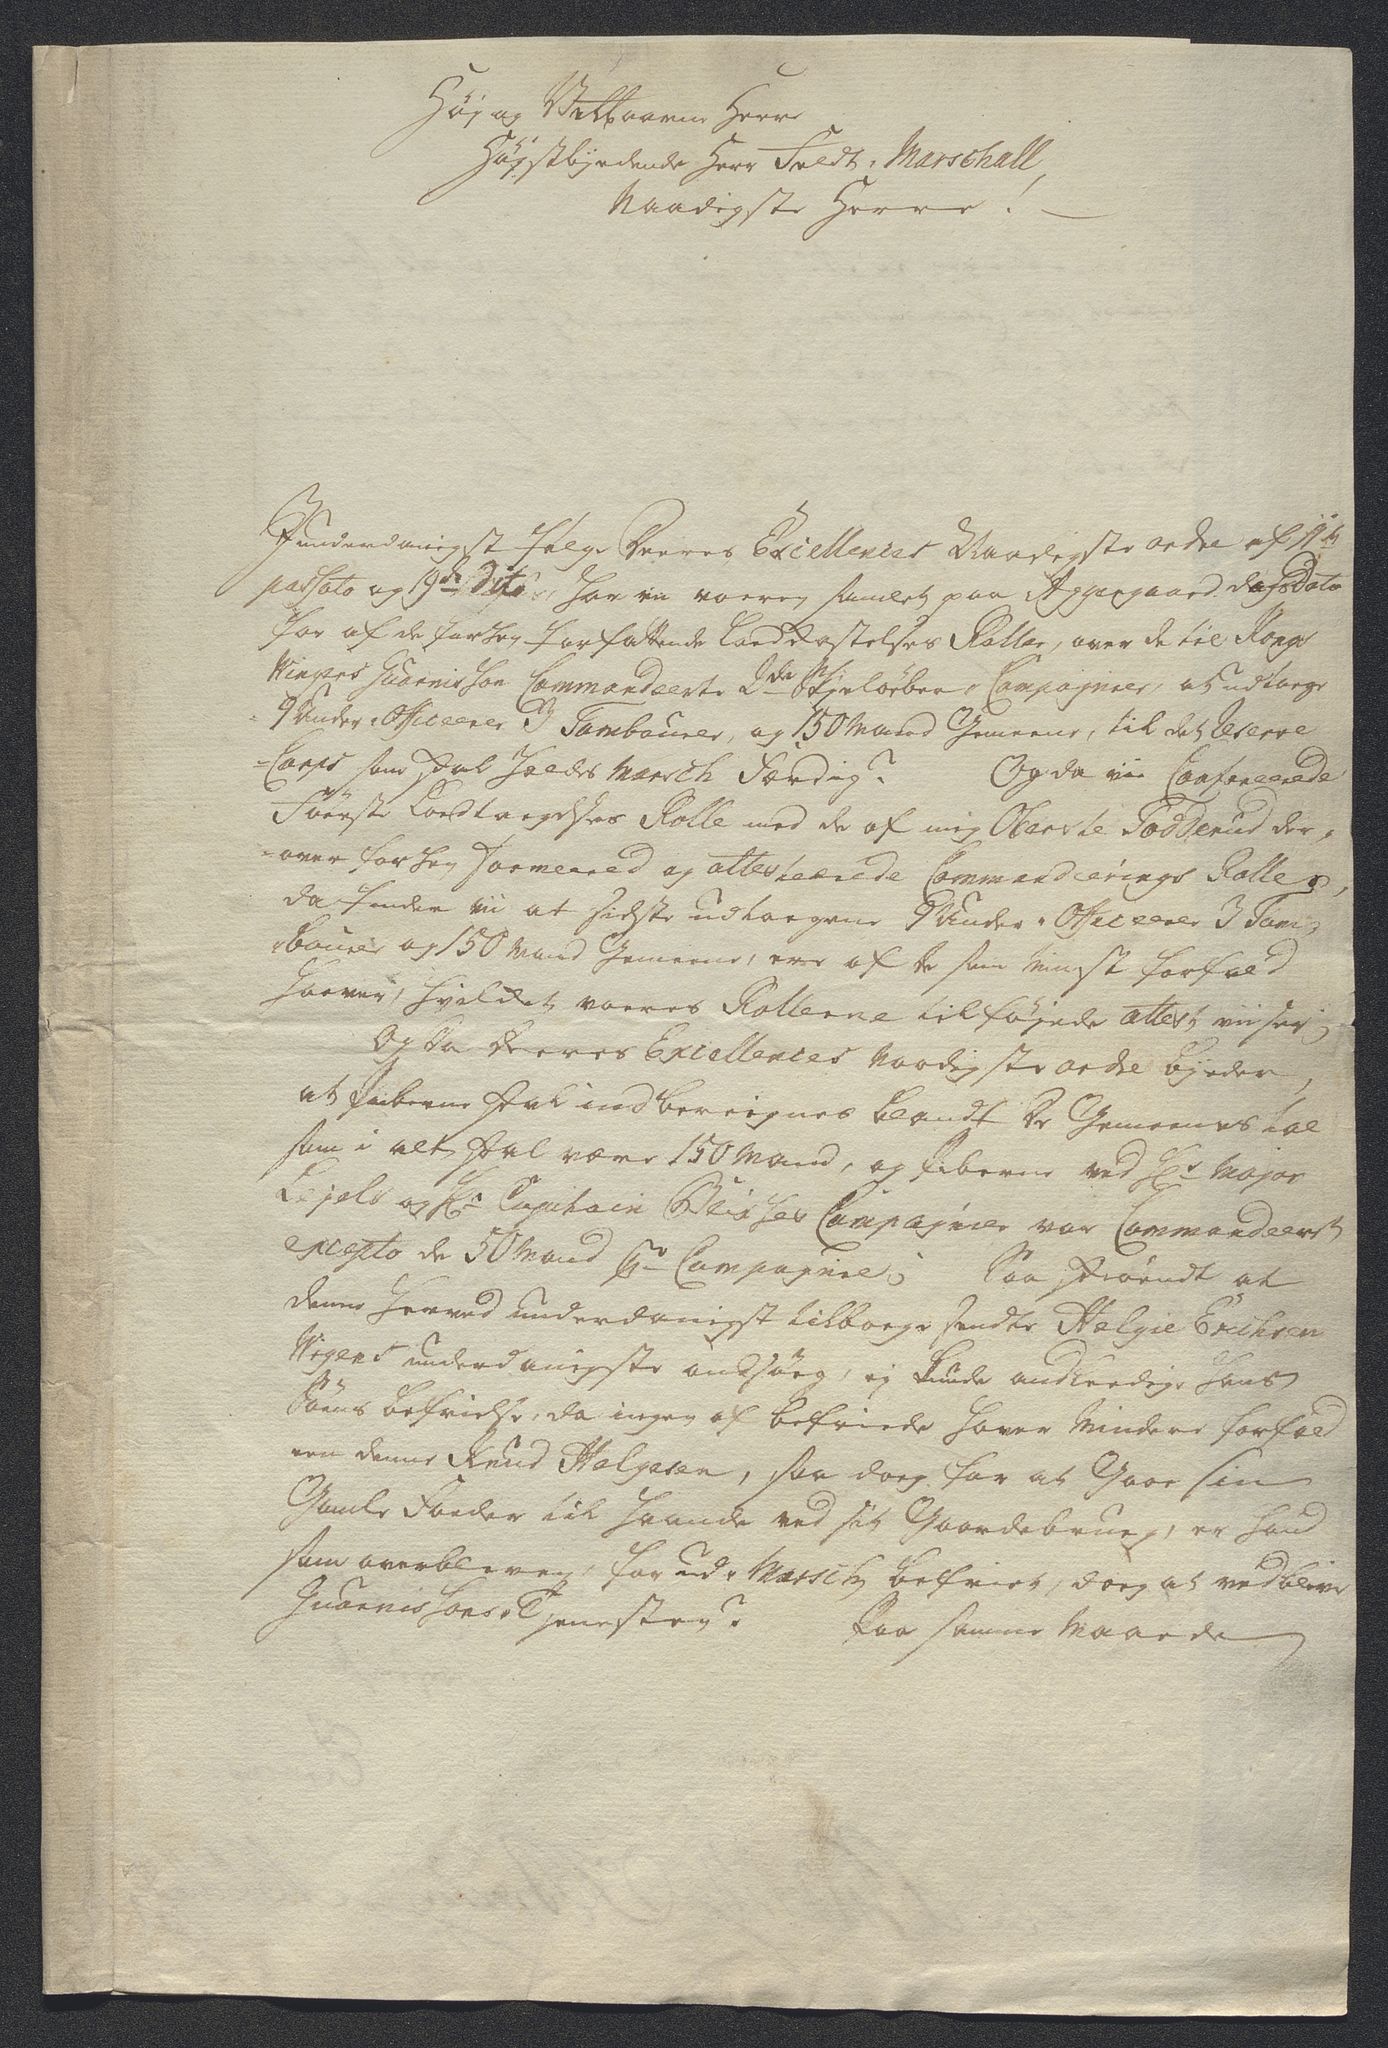 Høj og Velbaarne Herre
Høystbydende Herr Feldt-Marschall,
Naadigste Herre!
I underdanigst følge Deeres Excellences Naadigste ordre af 11te
passato og 19de dito, har vi været samlet paa Aggergaard dags Dato
for af de for seg forfattende Lodkastelses Roller, over de til Kongs
Wingers Guarnison Commandeerte 2de Skieløber-Compagnier, at udtage
9 Under-Officeerer 3 Tambourer, og 150 Mand Gemeene, til det Reserve
-Corps som skal holdes Marsch Færdig? Og da vii Confereerede
Første Lodtregelses Rolle med de af mig Oberste Todderud der-
-over for seg formeered og attesteerede Commandeerings Roller,
da finder vii at sidste udtagene 9 Under-Officeerer 3 Tam-
-bourer og 150 Mand Gemeene, ere af de som minst forfald
haver, hvilket voeres Rollerne tilføjede attest viiser;
Og da Deeres Excellences Naadigste ordre byder,
at Piberne skal indberegnes blandt De Gemeenes tal
som i alt skal være 150 Mand, og Piberne ved Hr Major
Lejels og Hr Capitain Blixses Compagnier var Commandeert
excepto de 50 Mand pr Compagnie; Saa skiøndt at
denne herved underdanigst tilbage sendte Helgie Erichsen
Wigens underdanigste andsøg, ej kunde andleedige hans
Søns befrielse, da ingen af befriede haver mindre forfald
een denne Knud Helgesen, saa dog for at Gaae sin
Gamle Fader til haande ved sit Gaardebrueg, er hand
som overbleven, for ud-Marsch befriet, dog at vedblive
Guarnisons-Tjenesten? Paa samme Maade